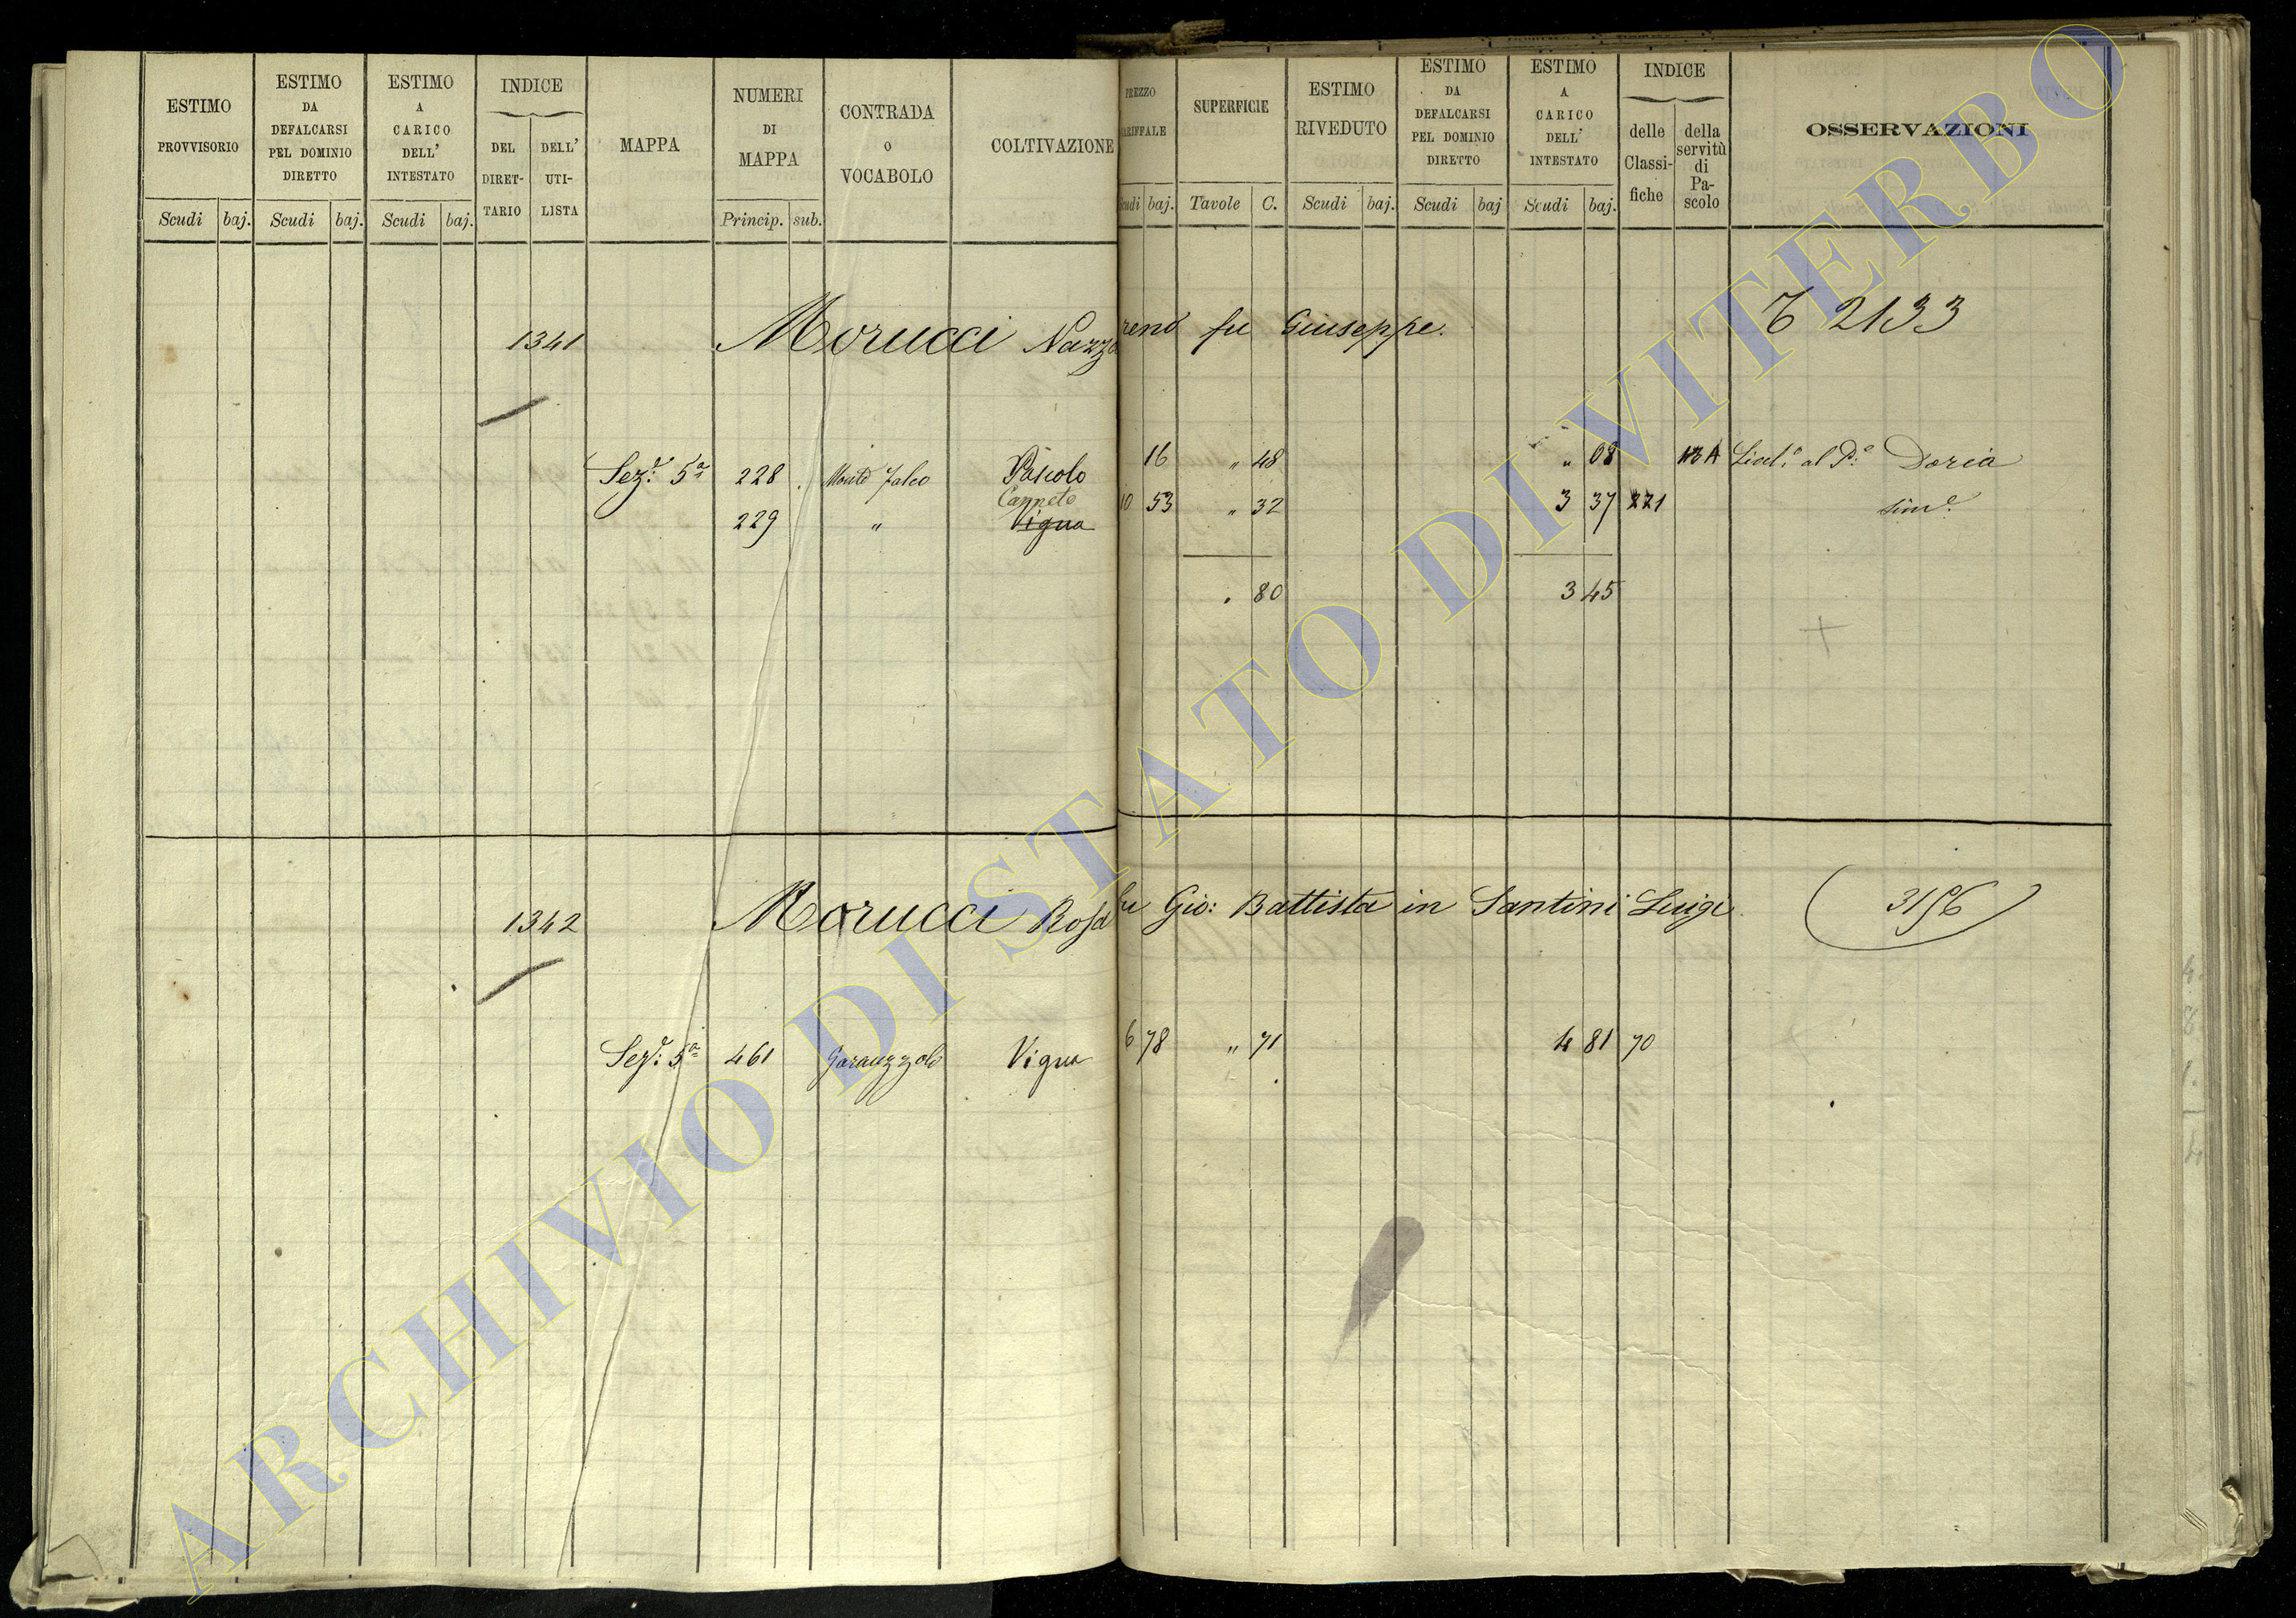 ESTIMO PROVVISORIO
ESTIMO DA DEFALCARSI PEL DOMINIO DIRETTO
ESTIMO A CARICO DELL' INTESTATO
INDICE
DEL DIRETTARIO
DELL' UTILISTA
MAPPA
NUMERI DI MAPPA
CONTRADA O VOCABOLO
COLTIVAZIONE
PREZZO TARIFFALE
SUPERFICIE
ESTIMO RIVEDUTO
ESTIMO DA DEFALCARSI PEL DOMINIO DIRETTO
ESTIMO A CARICO DELL' INTESTATO
INDICE
delle Classifiche
della servitù di Pascolo
OSSERVAZIONI
Scudi baj. Scudi baj. Scudi baj. Princip. sub. Scudi baj. Tavole C. Scudi baj. Scudi baj Scudi baj.
1341 Morucci Nazzareno fu Giuseppe. 2133
Sez.e 5a 228 Monte Falco Pascolo 16 " 48 " 08 A al P.e Doria
Canneto
229 " Vigna 10 53 " 32 3 37 221 sim.e
. 80 3 45
1342 Morucci Rosa fu Gio: Battista in Santini Luigi 3156
Sez.e 5a 461 Vigna 6 78 " 71 4 81 70
ARCHIVIO DI STATO DI VITERBO